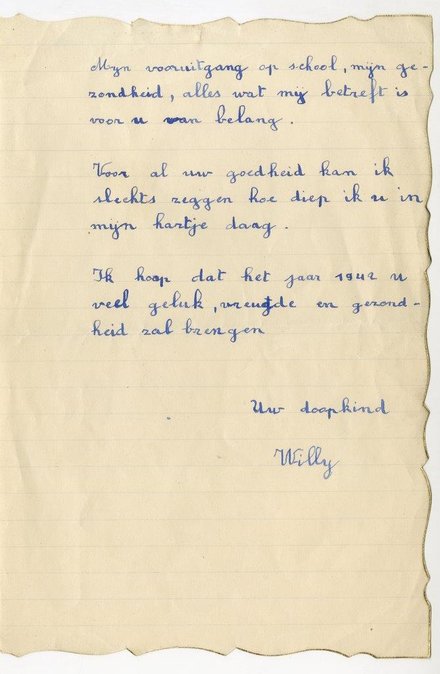 Mijn vooruitgang op school, mijn ge-
zondheid, alles wat mij betreft is
voor u van belang.
Voor al uw goedheid kan ik
slechts zeggen hoe diep ik u in
mijn hartje daag.
Ik hoop dat het jaar 1942 u
veel geluk, vreugde en gezond-
heid zal brengen
Uw doopkind
Willy